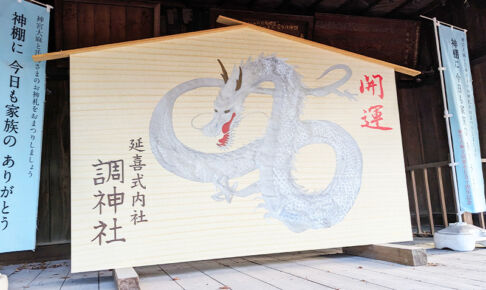 開運
延喜式内社
調神社
神宮大麻と氏神さまのお神札をおまつりしましょう
神棚に 今日も家族の ありがとう
神棚に 今日も家族の